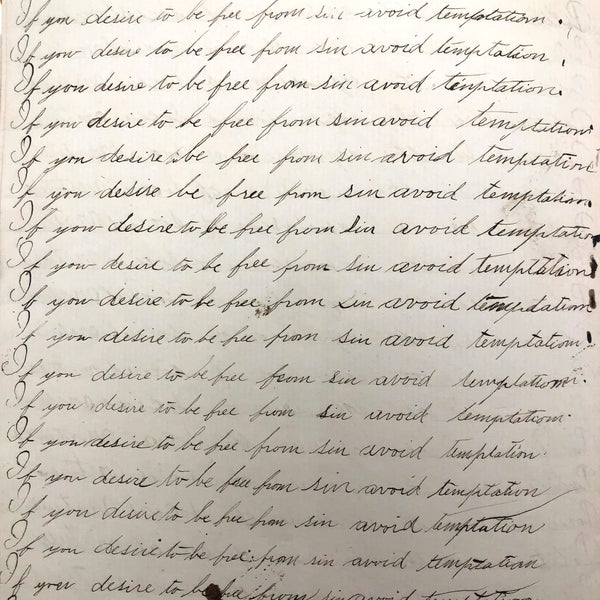 If you desire to be free from sin avoid temptation.
If you desire to be free from sin avoid temptation.
If you desire to be free from sin avoid temptation.
If you desire to be free from sin avoid temptation.
If you desire be free from sin avoid temptation
If you desire be free from sin avoid temptation.
If you desire to be free from sin avoid temptation
If you desire to be free from sin avoid temptation
If you desire to be free from sin avoid temptation
If you desire to be free from sin avoid temptation
If you desire to be free from sin avoid temptation.
If you desire to be free from sin avoid temptation.
If you desire to be free from sin avoid temptation.
If you desire to be free from sin avoid temptation
If you desire to be free from sin avoid temptation
If you desire to be free from sin avoid temptation
If you desire to be free from sin avoid temptation